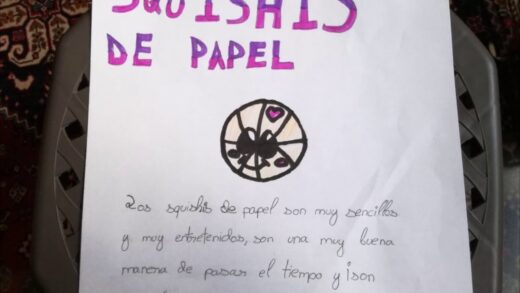 SQUISHIS
DE PAPEL
Los squishis de papel son muy sencillos
y muy entretenidos, son una muy buena
manera de pasar el tiempo y ¡son